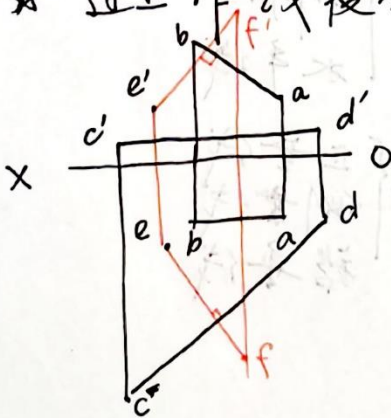 f'
b
e'
a
c'
d'
X
O
e
b
a
d
f
c